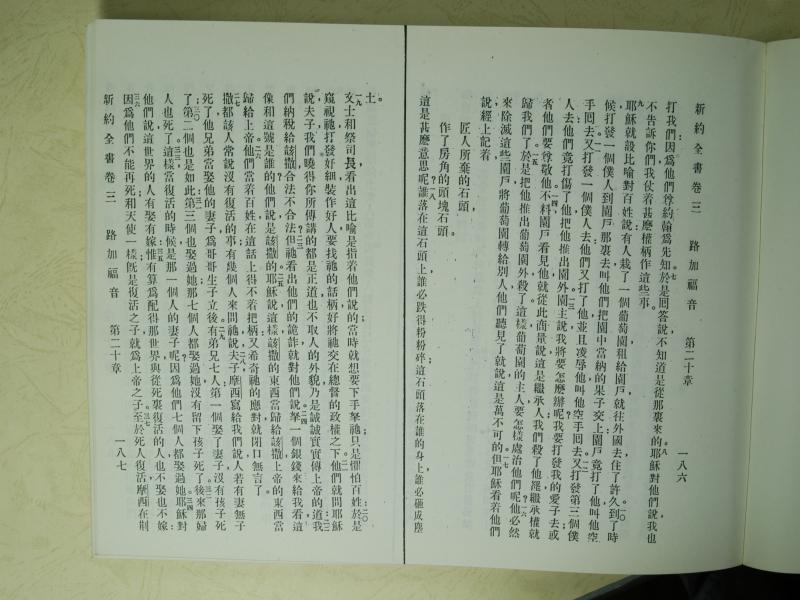 新約全書卷三　路加福音　第二十章　一八六
打我們因爲他們尊約翰爲先知。七於是回答說不知道是從那裏來的。八耶穌對他們說我也
不告訴你們我仗着甚麼權柄作這些事
九耶穌就設比喻對百姓說有人栽了一個葡萄園租給園戶就往外國去住了許久一〇到了時
候打發一個僕人到園戶那裏去叫他們把園中當納的果子交上園戶竟打了他叫他空
手回去一一又打發一個僕人去他們又打了他並且凌辱他叫他空手回去一二又打發第三個僕
人去他們竟打傷了他把他推出園外一三園主說我將要怎麼辦呢我要打發我的愛子去或
者他們要尊敬他一四不料園戶看見他就從此商量說這是繼承人我們殺了他罷繼承權就
歸我們了一五於是把他推出葡萄園外殺了這樣葡萄園的主人要怎樣處治他們呢一六他必然
來除滅這些園戶將葡萄園轉給別人他們聽見了就說這是萬不可的一七但耶穌看着他們
說經上記着
匠人所棄的石頭
作了房角的頭塊石頭
這是甚麼意思呢一八誰落在這石頭上誰必跌得粉粉碎這石頭落在誰的身上誰必砸成塵
土。
一九文士和祭司長看出這比喻是指着他們說的當時就想要下手拏祂只是懼怕百姓二〇於是
窺視祂打發好細裝作好人要找祂的話柄好將祂交在總督的政權之下二一他們就問耶穌
說夫子我們曉得你所傳講的都是正道也不取人的外貌乃是誠誠實實傳上帝的道二二我
們納稅給該撒合法不合法二三但祂看出他們的詭詐就對他們說二四拏一個銀錢來給我看這
像和這號是誰的他們說是該撒的二五耶穌說這樣該撒的東西當歸給該撒上帝的東西當
歸給上帝二六他們當着百姓在這話上得不着把柄又希奇祂的應對就閉口無言了
二七撒都該人常說沒有復活的事有幾個人來問祂說二八夫子摩西寫給我們說人若有妻無子
死了他兄弟當娶他的妻子爲哥哥生子立後二九有弟兄七人第一個娶了妻子沒有孩子死
了三〇第二個也是如此三一第三個也娶過她那七個人都娶過她沒有留下孩子死了三二後來那婦
人也死了三三這樣當復活的時候是那一個人的妻子呢因爲他們七個人都娶過她三四耶穌對
他們說這世界的人有娶有嫁三五惟有算爲配得那世界與從死裏復活的人也不娶也不嫁
三六因爲他們不能再死和天使一樣旣是復活之子就爲上帝之子三七至於死人復活摩西在荆
新約全書卷三　路加福音　第二十章　一八七